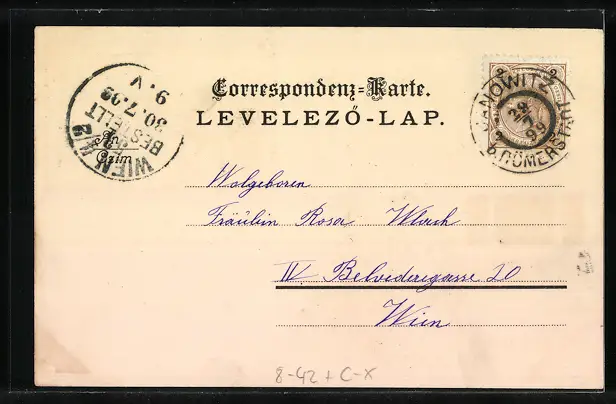 Correspondenz=Karte.
LEVELEZŐ-LAP.
WIEN
BESTELLT
30.7.99
9. V
An
Czim
JANOWITZ
29
99
RÖMERSTADT
Wolgeboren
Fräulein Rosa Wlach
IV. Belvederegasse 20
Wien
8-42 + C-X